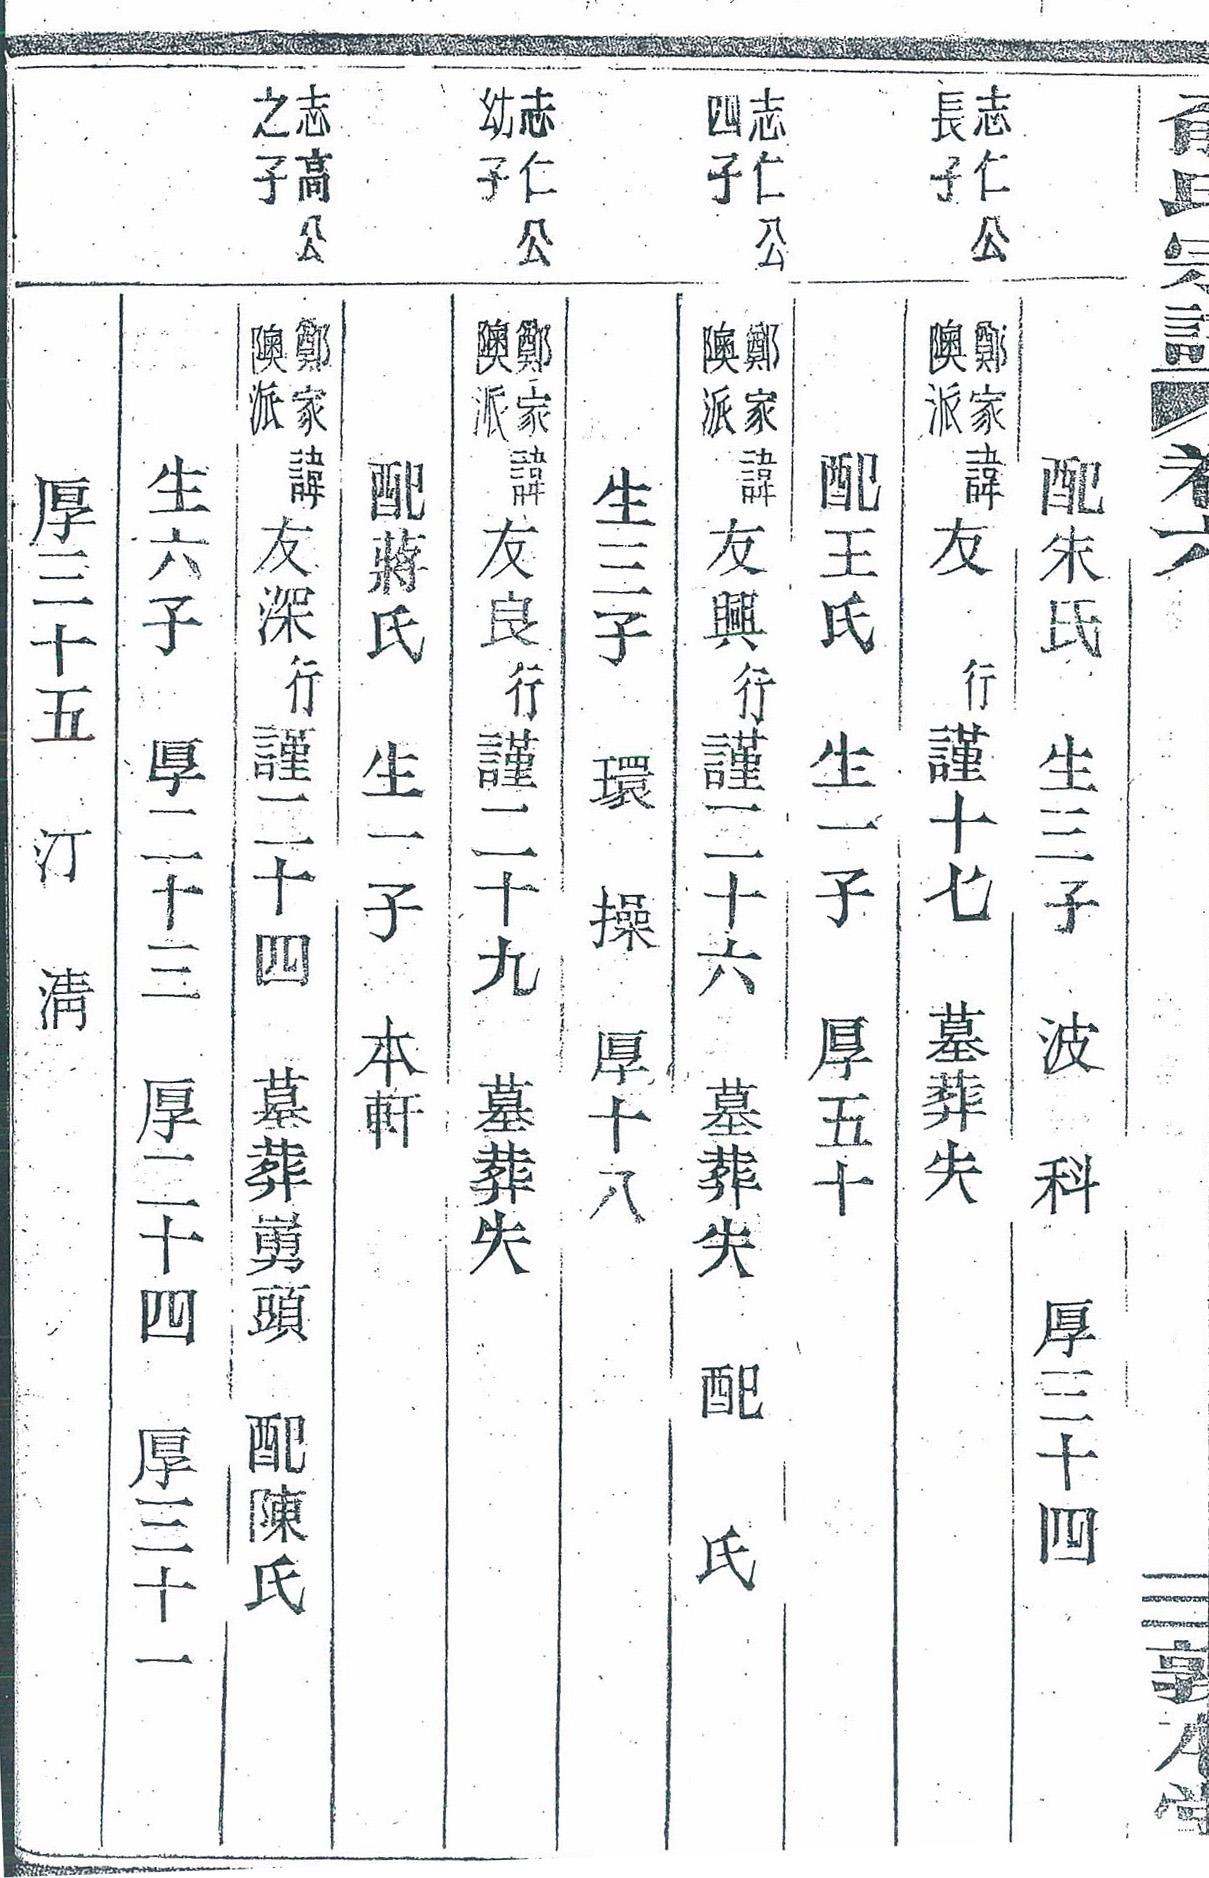 氏宗譜 卷六 敦本堂
配朱氏 生三子 波 科 厚三十四
志仁公長子
鄭家隩派 諱友 行謹十七 墓葬失
配王氏 生一子 厚五十
志仁公四子
鄭家隩派 諱友興 行謹二十六 墓葬失 配 氏
生三子 環 操 厚十八
志仁公幼子
鄭家隩派 諱友良 行謹二十九 墓葬失
配蔣氏 生一子 本軒
志高公之子
鄭家隩派 諱友深 行謹二十四 墓葬 頭 配陳氏
生六子 厚二十三 厚二十四 厚三十一
厚三十五 汀 淸